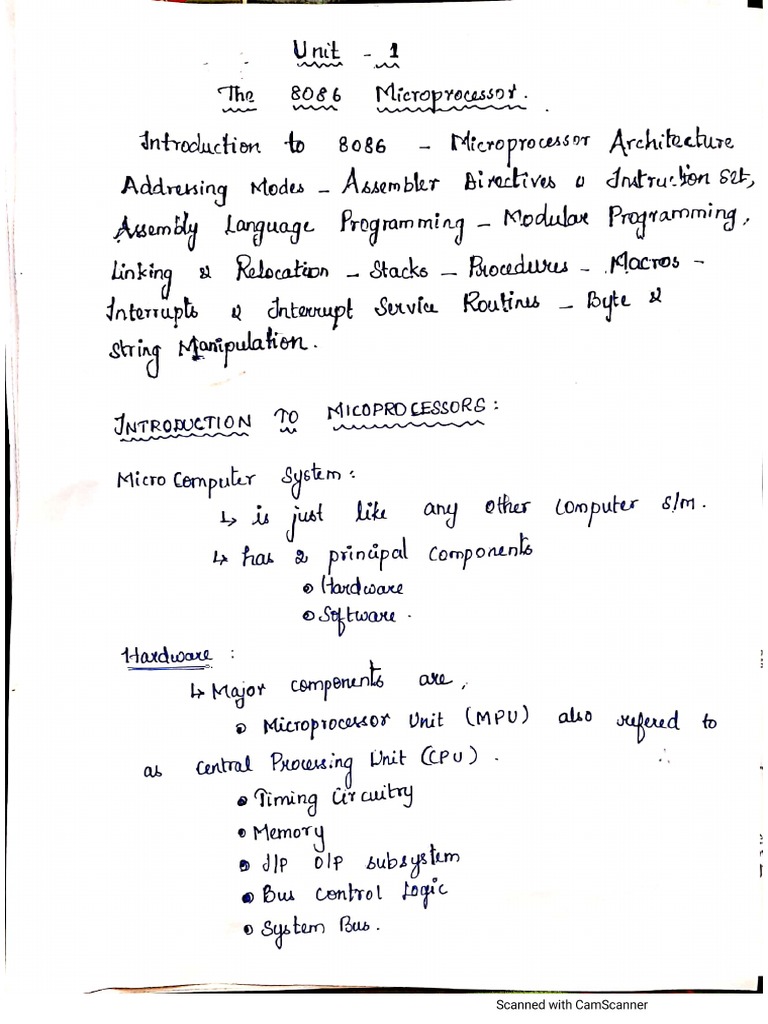 Unit - 1
The 8086 Microprocessor.
Introduction to 8086 - Microprocessor Architecture
Addressing Modes - Assembler Directives & Instruction Set,
Assembly Language Programming - Modular Programming,
Linking & Relocation - Stacks - Procedures - Macros -
Interrupts & Interrupt Service Routines - Byte &
String Manipulation.
INTRODUCTION TO MICOPROCESSORS :
Micro Computer System :
↳ is just like any other computer s/m.
↳ has 2 principal components
• Hardware
• Software.
Hardware :
↳ Major components are,
• Microprocessor Unit (MPU) also refered to
as Central Processing Unit (CPU).
• Timing Circuitry
• Memory
• I/P O/P subsystem
• Bus control Logic
• System Bus.
Scanned with CamScanner